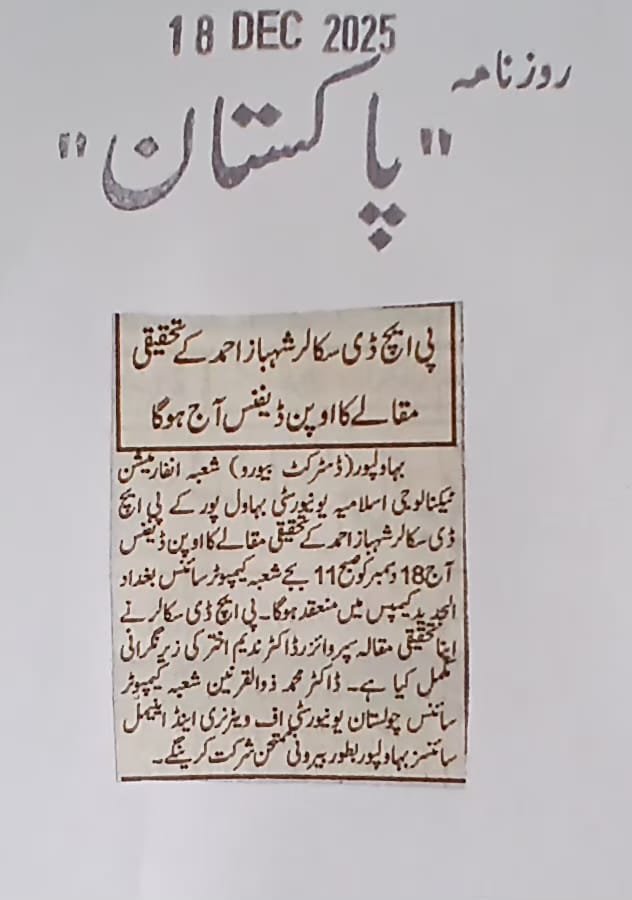 18 DEC 2025
روزنامہ
"پاکستان"
پی ایچ ڈی سکالر شہباز احمد کے تحقیقی
مقالے کا اوپن ڈیفنس آج ہوگا
بہاولپور (ڈسٹرکٹ بیورو) شعبہ انفارمیشن
ٹیکنالوجی اسلامیہ یونیورسٹی بہاول پور کے پی ایچ
ڈی سکالر شہباز احمد کے تحقیقی مقالے کا اوپن ڈیفنس
آج 18 دسمبر کو صبح 11 بجے شعبہ کمپیوٹر سائنس بغداد
الجدید کیمپس میں منعقد ہوگا۔ پی ایچ ڈی سکالر نے
اپنا تحقیقی مقالہ سپروائزر ڈاکٹر ندیم اختر کی زیر نگرانی
مکمل کیا ہے۔ ڈاکٹر محمد ذوالقرنین شعبہ کمپیوٹر
سائنس چولستان یونیورسٹی آف ویٹرنری اینڈ اینیمل
سائنسز بہاولپور بطور بیرونی ممتحن شرکت کرینگے۔